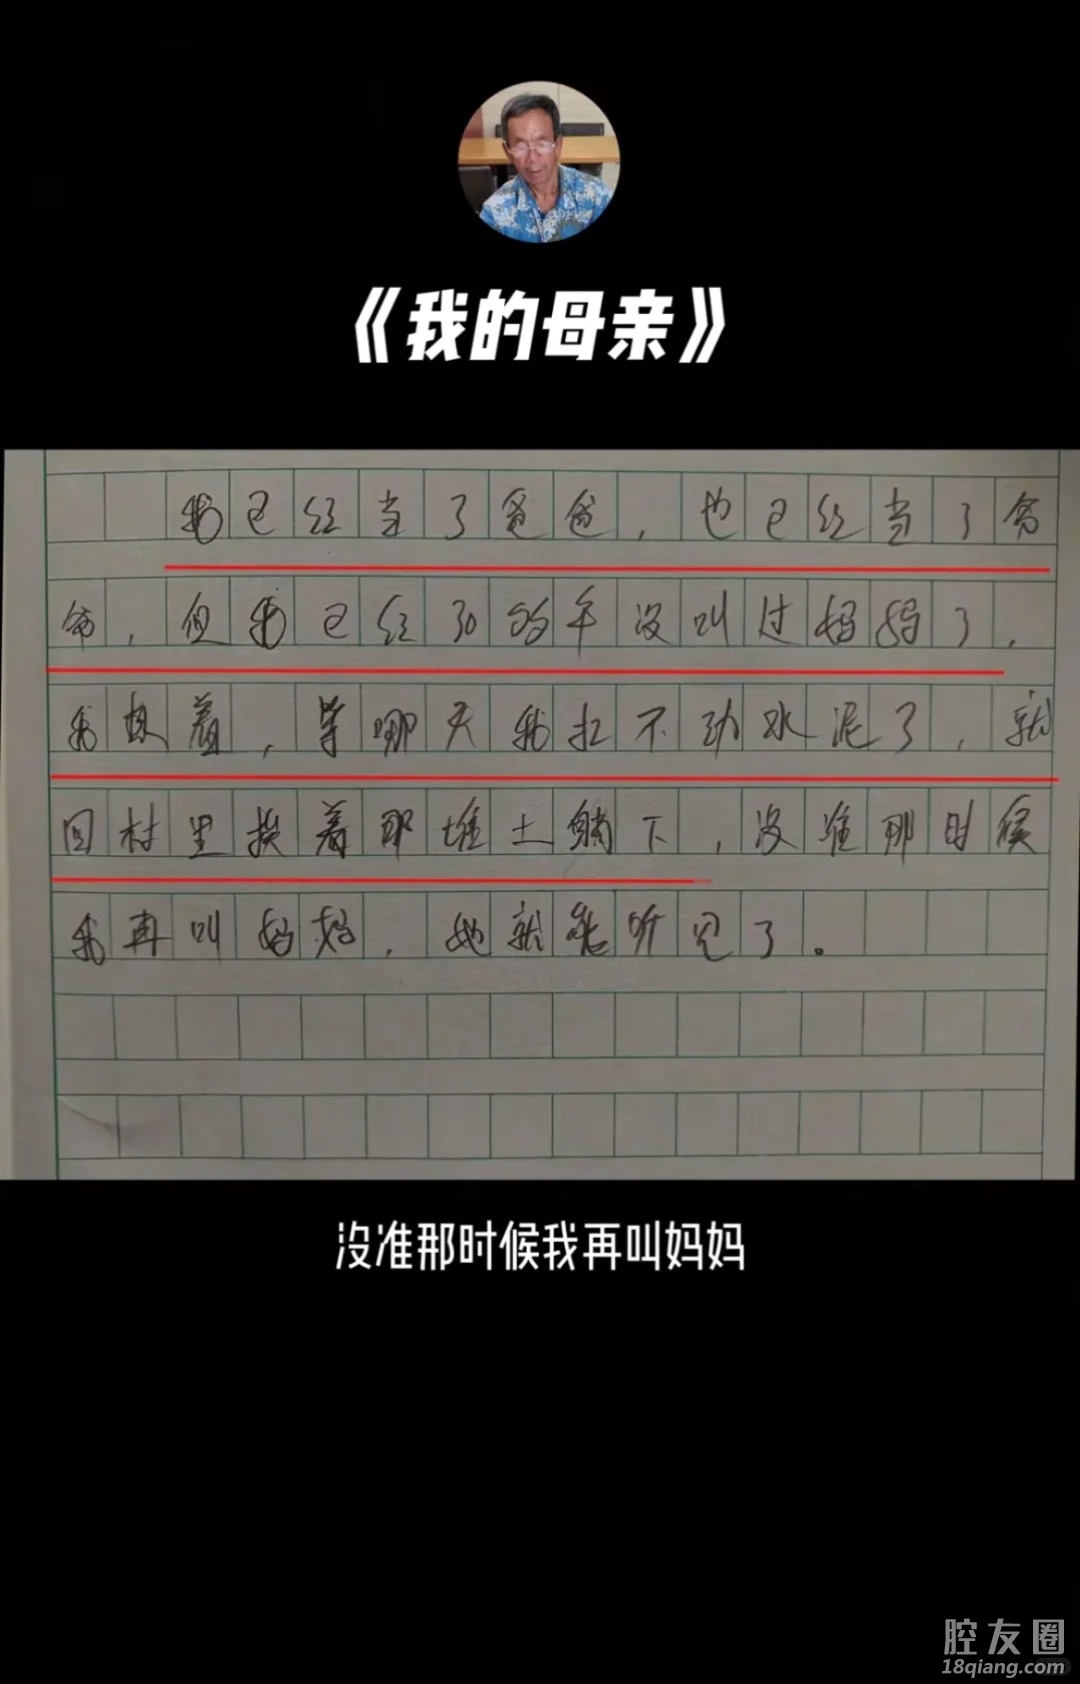 《我的母亲》
我已经当了爸爸,也已经当了爷
爷,但我已经30多年没叫过妈妈了,
我想着,等哪天我扛不动水泥了,就
回村里挨着那堆土躺下,没准那时候
我再叫妈妈,她就能听见了。
没准那时候我再叫妈妈
腔友圈
18qiang.com